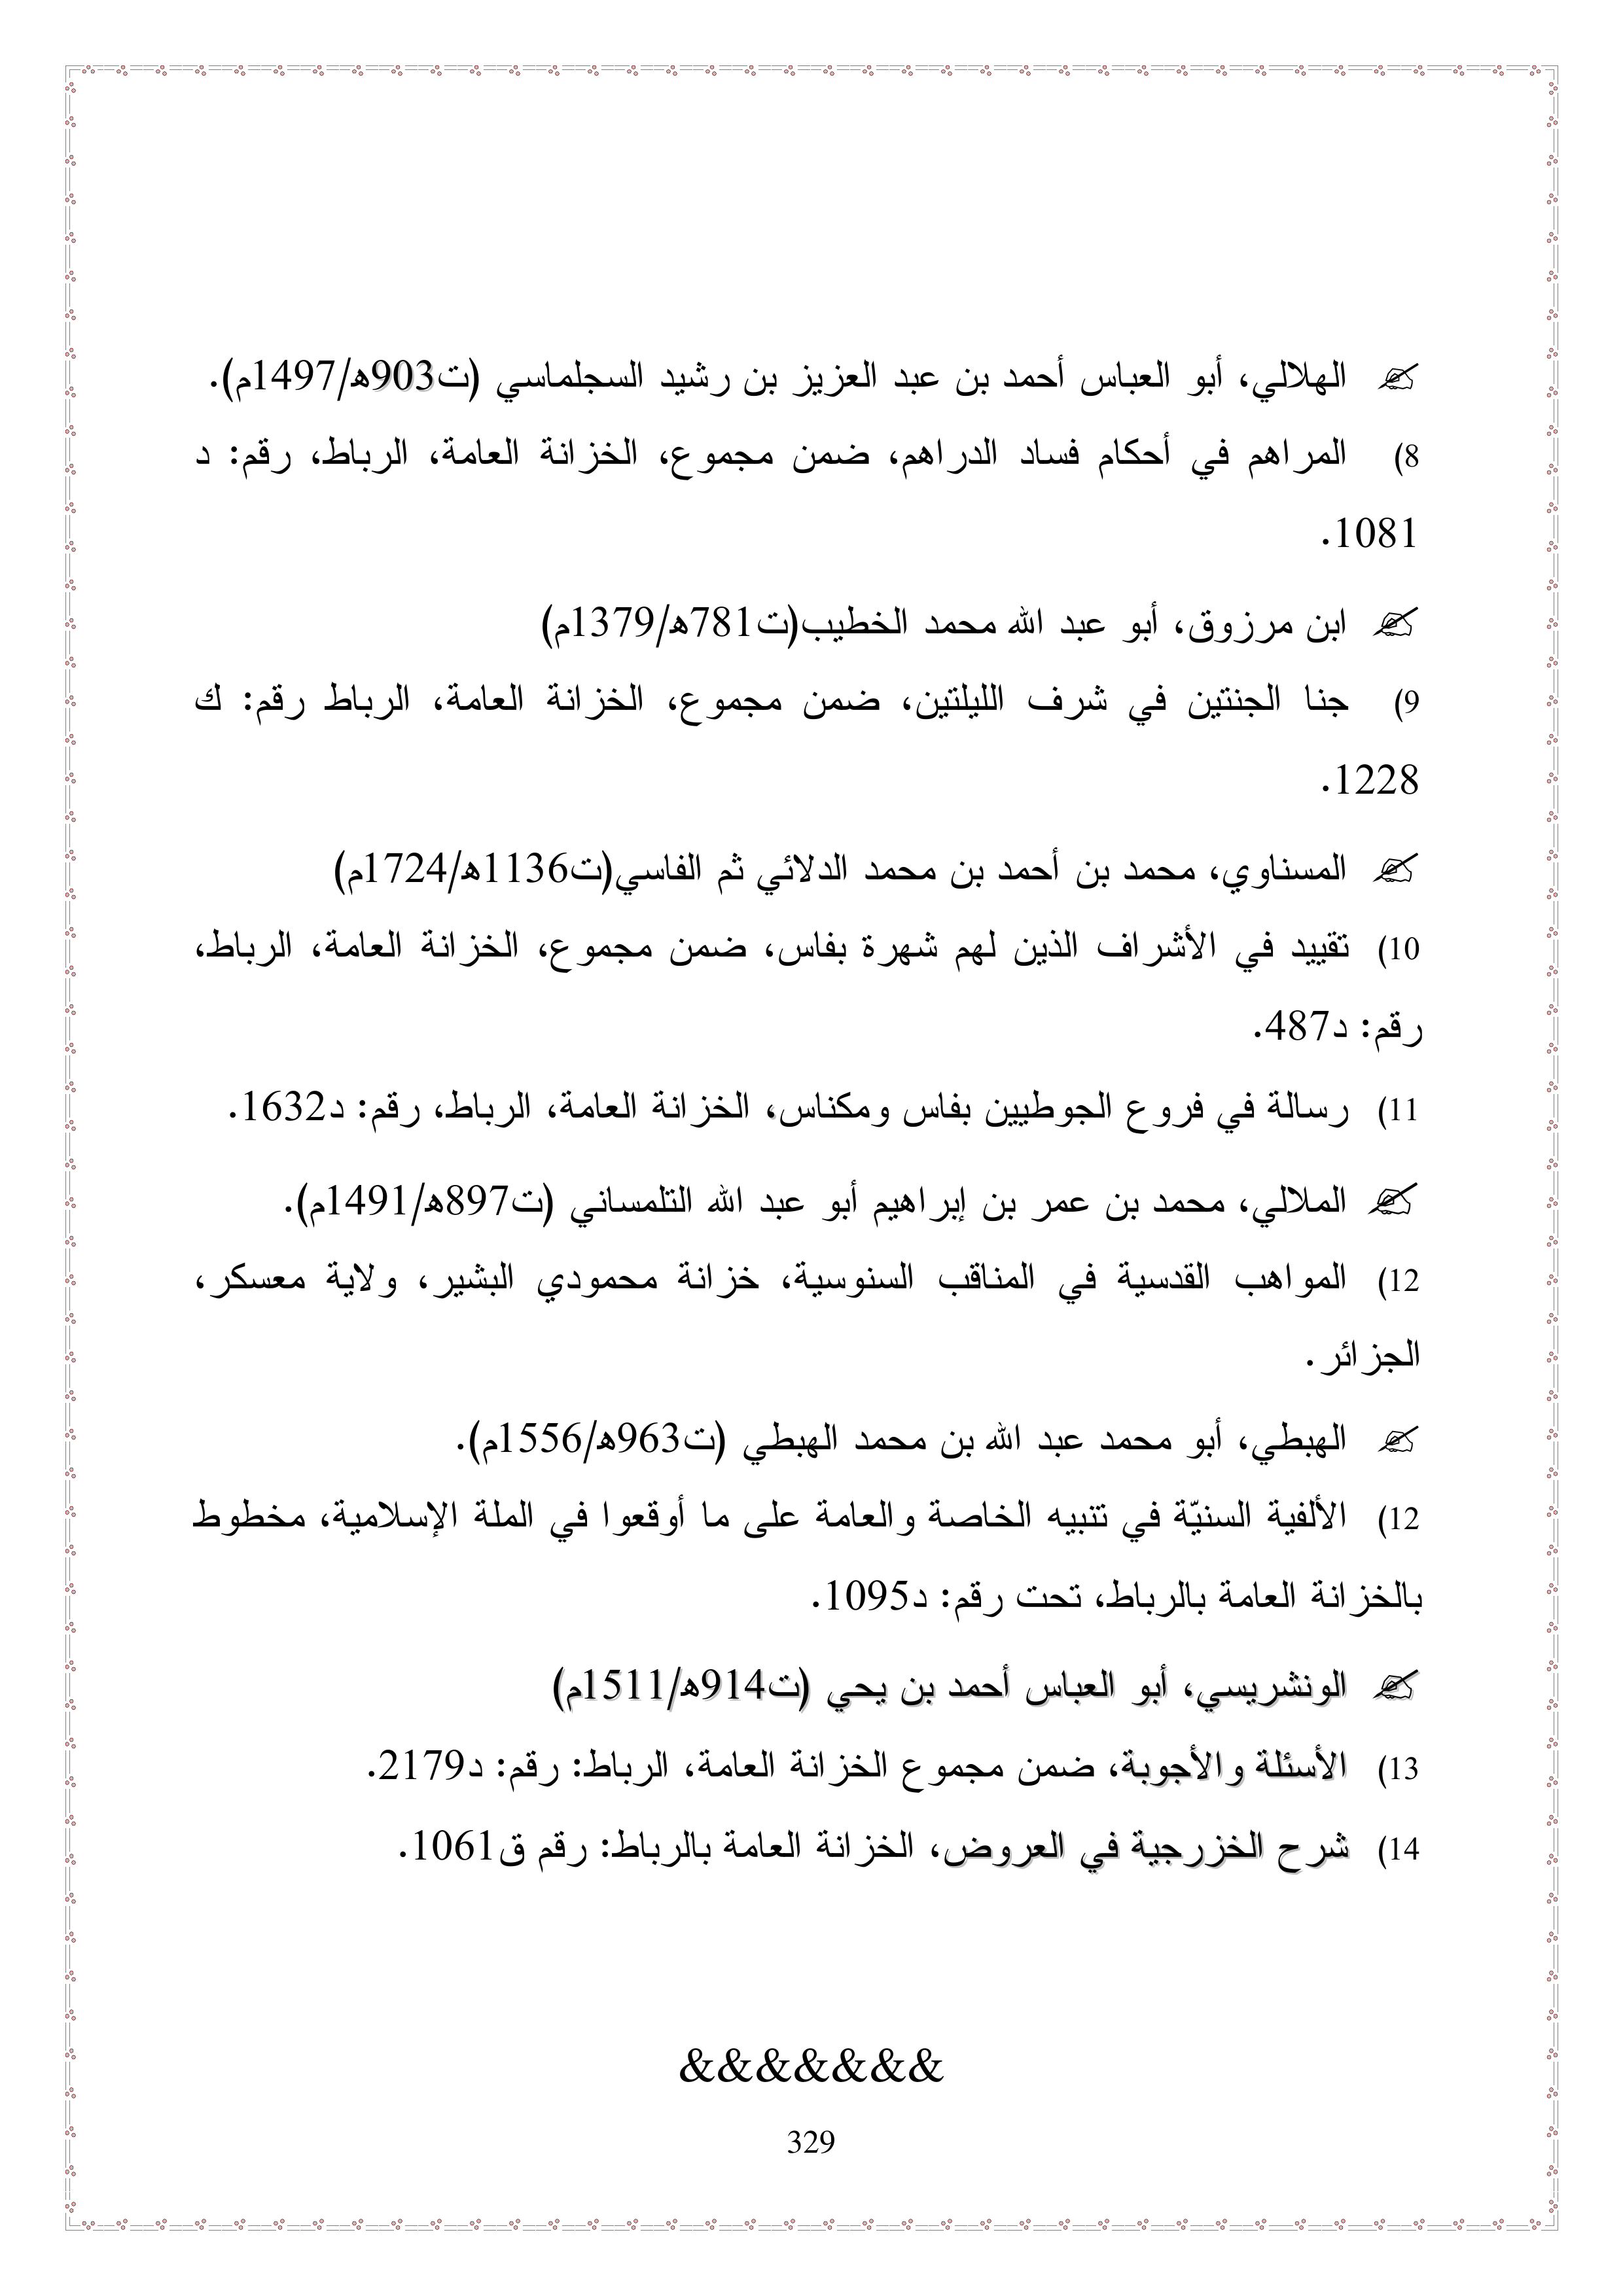 الهلالي، أبو العباس أحمد بن عبد العزيز بن رشيد السجلماسي (ت903ه/1497م).
8) المراهم في أحكام فساد الدراهم، ضمن مجموع، الخزانة العامة، الرباط، رقم: د
1081.
ابن مرزوق، أبو عبد الله محمد الخطيب(ت781ه/1379م)
9) جنا الجنتين في شرف الليلتين، ضمن مجموع، الخزانة العامة، الرباط رقم: ك
1228.
المسناوي، محمد بن أحمد بن محمد الدلائي ثم الفاسي(ت1136ه/1724م)
10) تقييد في الأشراف الذين لهم شهرة بفاس، ضمن مجموع، الخزانة العامة، الرباط،
رقم: د487.
11) رسالة في فروع الجوطيين بفاس ومكناس، الخزانة العامة، الرباط، رقم: د1632.
الملالي، محمد بن عمر بن إبراهيم أبو عبد الله التلمساني (ت897ه/1491م).
12) المواهب القدسية في المناقب السنوسية، خزانة محمودي البشير، ولاية معسكر،
الجزائر.
الهبطي، أبو محمد عبد الله بن محمد الهبطي (ت963ه/1556م).
12) الألفية السنيّة في تنبيه الخاصة والعامة على ما أوقعوا في الملة الإسلامية، مخطوط
بالخزانة العامة بالرباط، تحت رقم: د1095.
الونشريسي، أبو العباس أحمد بن يحي (ت914ه/1511م)
13) الأسئلة والأجوبة، ضمن مجموع الخزانة العامة، الرباط: رقم: د2179.
14) شرح الخزرجية في العروض، الخزانة العامة بالرباط: رقم ق1061.
&&&&&&&
329